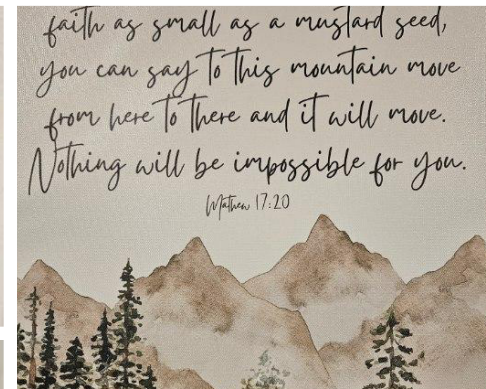 faith as small as a mustard seed,
you can say to this mountain move
from here to there and it will move.
Nothing will be impossible for you.
Mathew 17:20